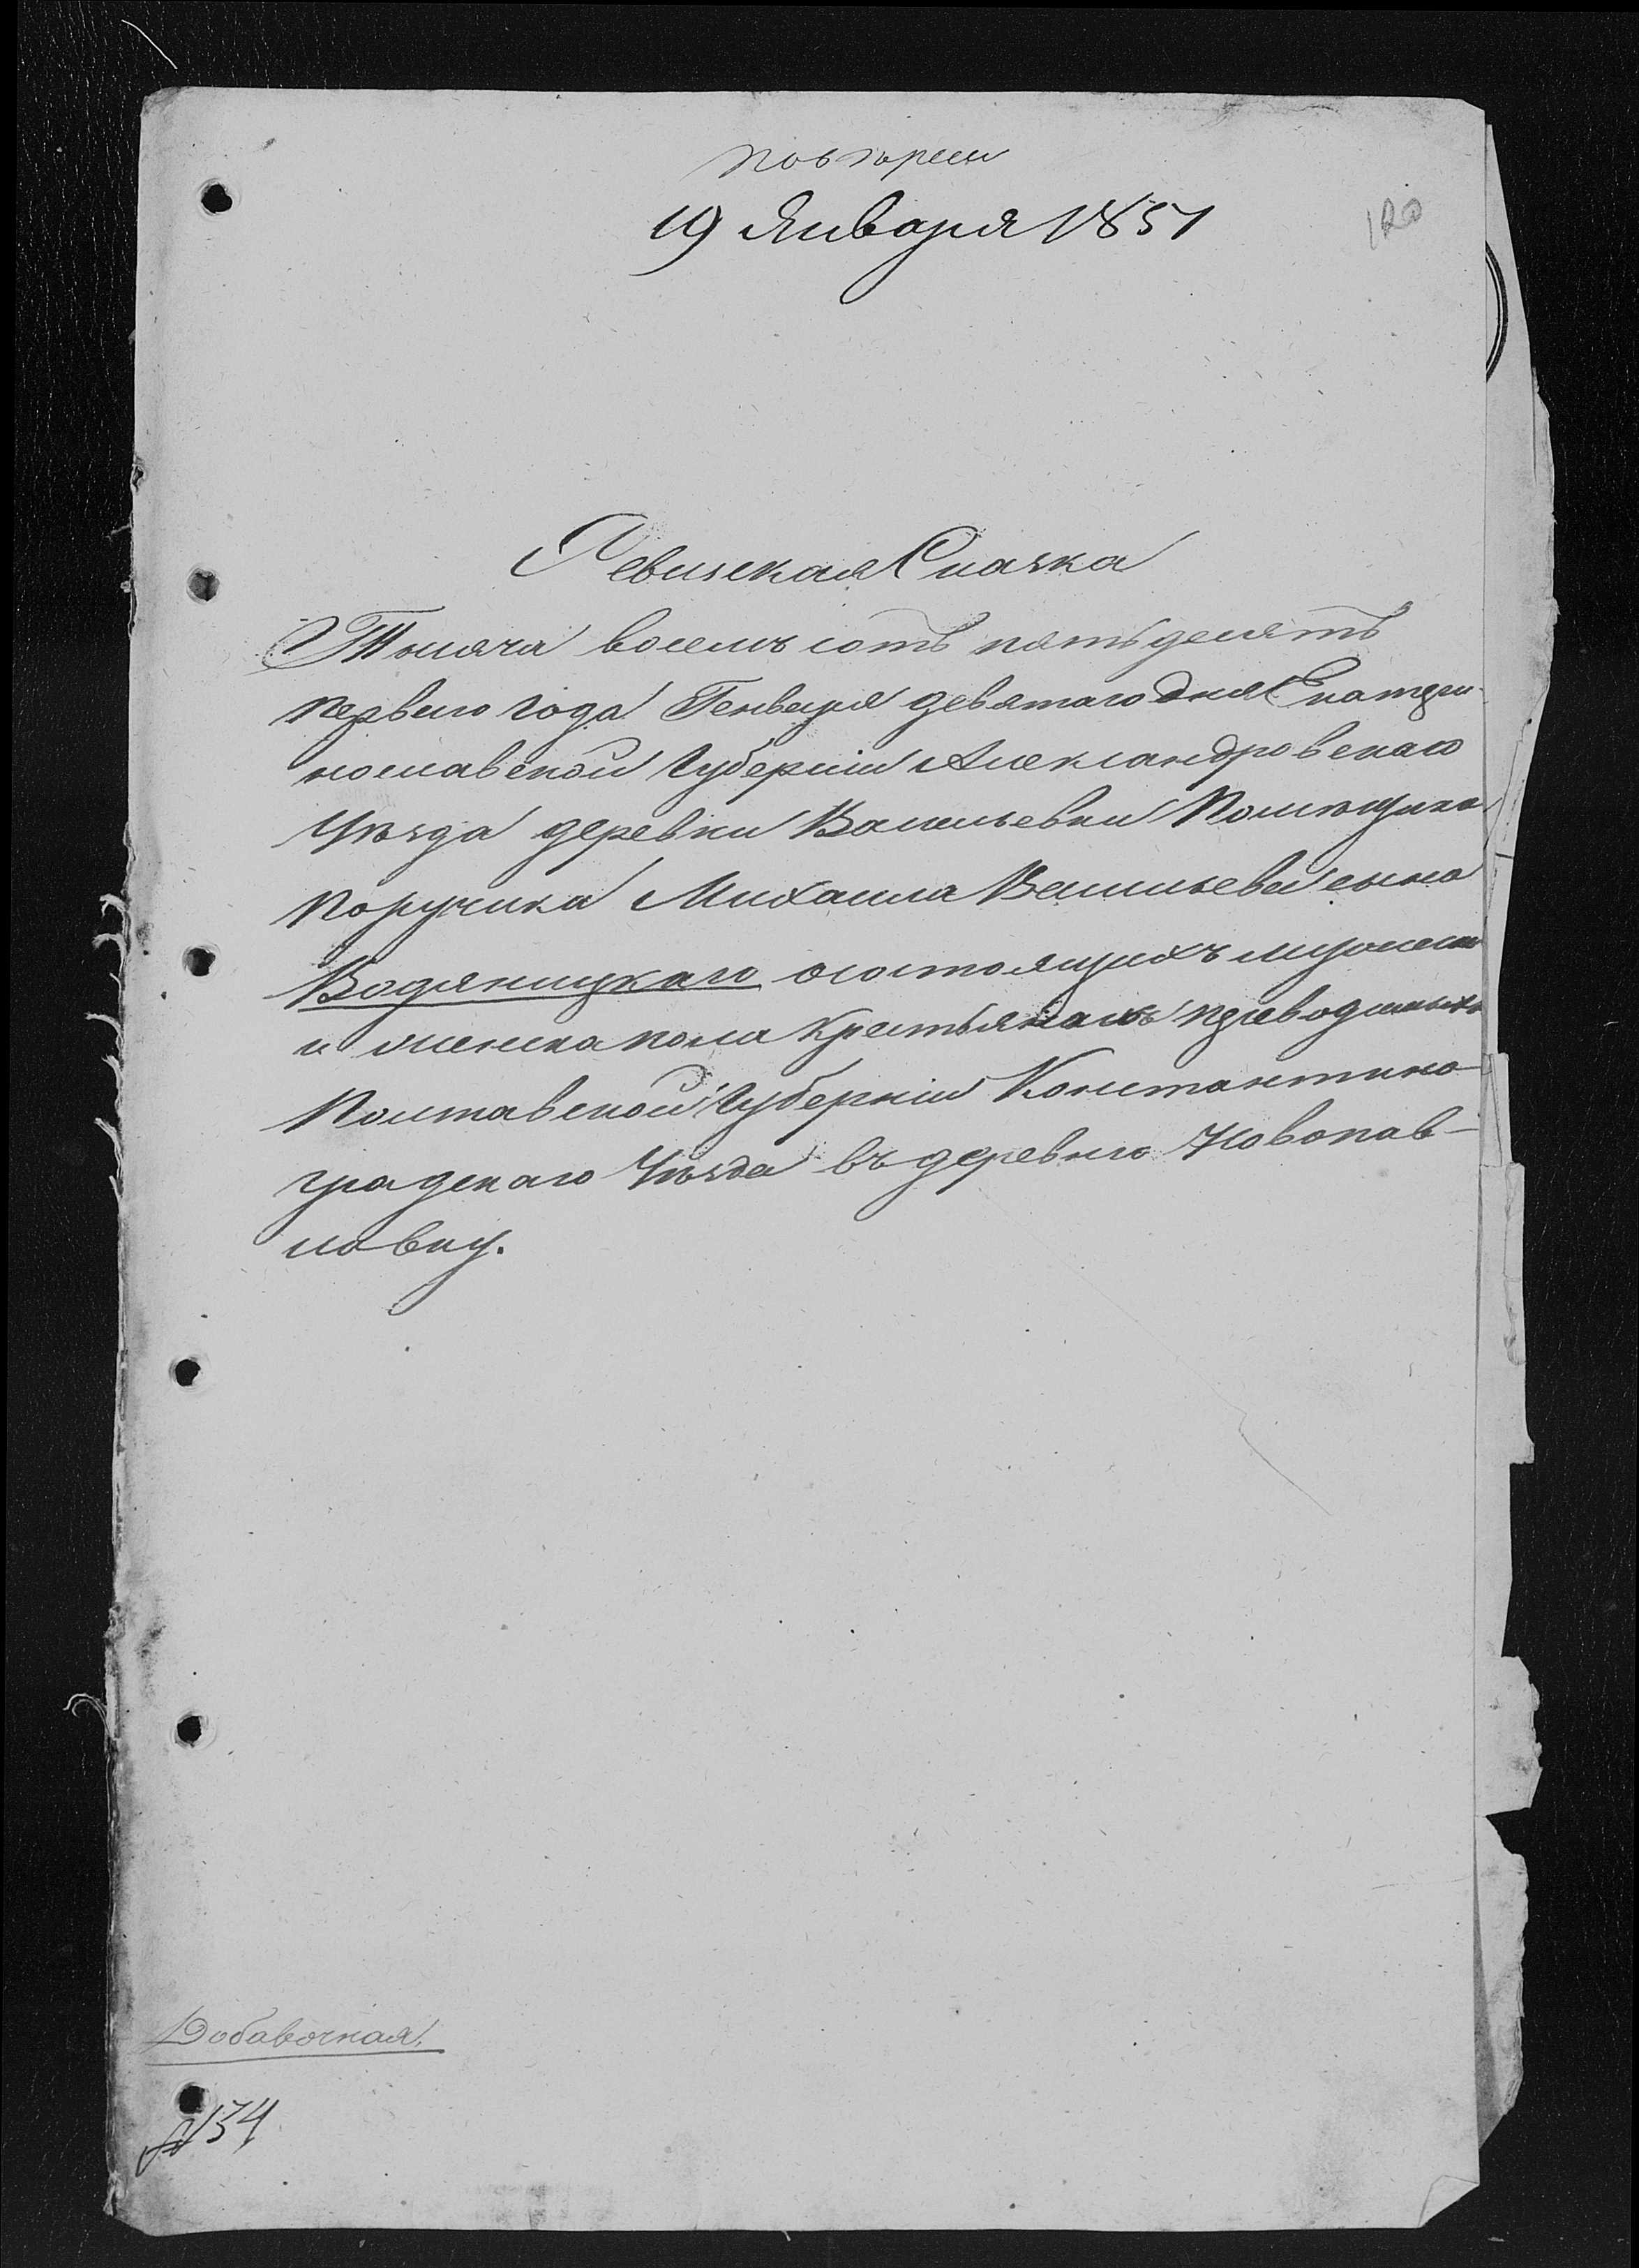 19 Января 1851
120
Ревизская Сказка
Тысяча восемь сотъ пятьдесятъ
перваго года Генваря девятаго дня Екатери-
нославской Губерніи Александровскаго
Уѣзда деревни Васильевки Помѣщика
Поручика Михаила Васильева сына
Водяницкаго о состоящихъ мужеска
и женска пола крестьянахъ переводимыхъ
Полтавской Губерніи Константино-
градскаго Уѣзда въ деревню Новопав-
ловку.
Добавочная.
№ 134